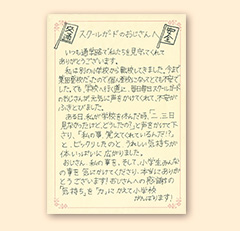 交通
安全
スクールガードのおじさんへ
いつも通学路で私たちを見守ってくれて
ありがとうございます。
私は別の小学校から転校してきました。今まで
集団登校だったので個人登校になってとても不安で
した。でも、学校へ行く道に、毎日毎日スクールガード
のおじさんが元気に声をかけてくれて、不安が
ふきとびました。
ある日、私が学校を休んだ時、「二、三日
見なかったけど、どうしたの?」と声をかけて下
さり、「私の事、覚えてくれているんだ!?」
と、ビックリしたのと、うれしい気持ちが
体いっぱいに広がりました。
おじさん、私の事を、そして、小学生みんな
の事を気にかけてくださり、本当にありがとう
とうございます!おじさんへの感謝の
「気持ち」を「力」にかえて小学校
がんばります!